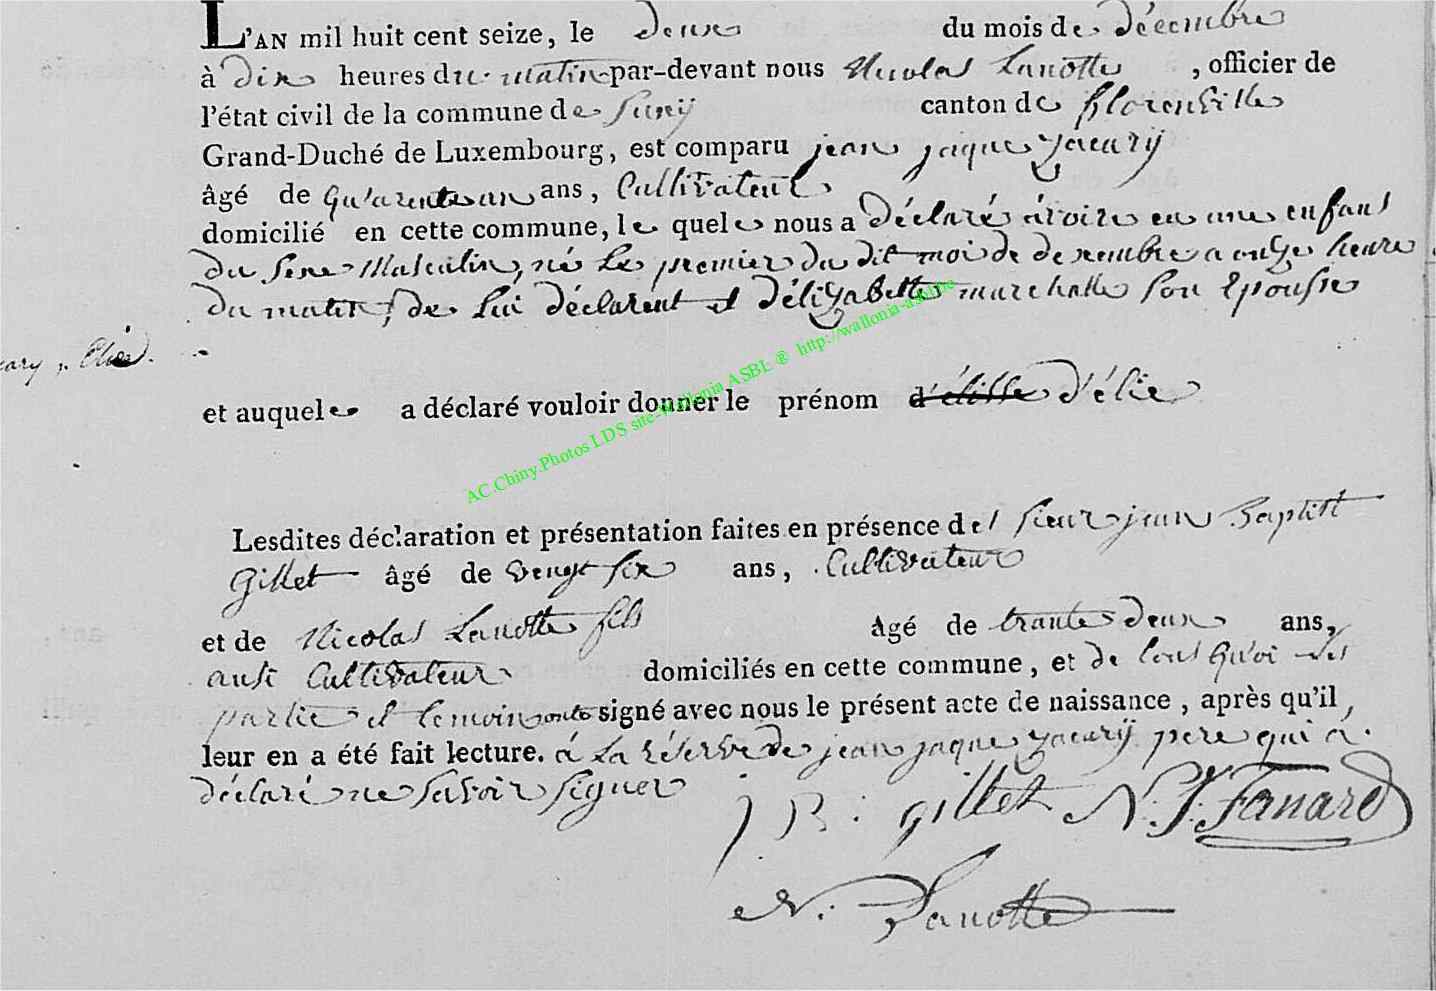 L'AN mil huit cent seize, le deux du mois de décembre
à dix heures du matin par-devant nous Nicolas Lanotte , officier de
l'état civil de la commune de Suxÿ canton de florenville
Grand-Duché de Luxembourg, est comparu jean jaque zacarÿ
âgé de Qu'arente un ans, Cultivateur
domicilié en cette commune, le quel nous a déclaré avoire eu une enfant
du sexe Masculin, né Le premier du dit moi de decembre a onze heure
du matin, de Lui déclarent et d'élizabette marchalle son Epousse
cary . Elie.
et auquel a déclaré vouloir donner le prénom d'élisse d'élie
AC.Chiny.Photos LDS site-Wallonia ASBL ® http://wallonia-asbl.be
Lesdites déclaration et présentation faites en présence del sieur jean Baptist
Gillet âgé de vengt six ans, Cultivateur
et de Nicolas Lanotte fils âgé de trante deux ans,
ausi Cultivateur domiciliés en cette commune, et de tous Qu'oi les
partie et temoin onts signé avec nous le présent acte de naissance, après qu'il
leur en a été fait lecture. á La réserve de jean jaque zacarÿ pere qui á
déclaré ne savoir signer
J B: gillet N: J: Fanard
N: Lanotte